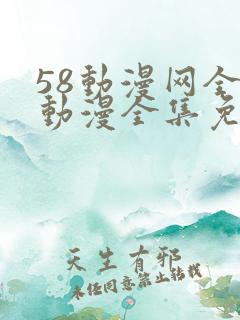 58動漫网全
動漫全集免
天生有邪
未经同意禁止转载